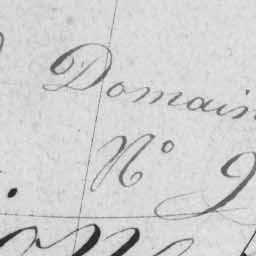 Domain
N° 9